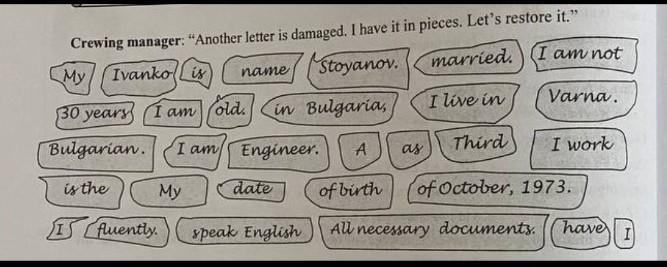 Crewing manager: “Another letter is damaged. I have it in pieces. Let’s restore it.”
My Ivanko is name Stoyanov. married. I am not
30 years I am old. in Bulgaria, I live in Varna.
Bulgarian. I am Engineer. A as Third I work
is the My date of birth of October, 1973.
I fluently. speak English All necessary documents. have I